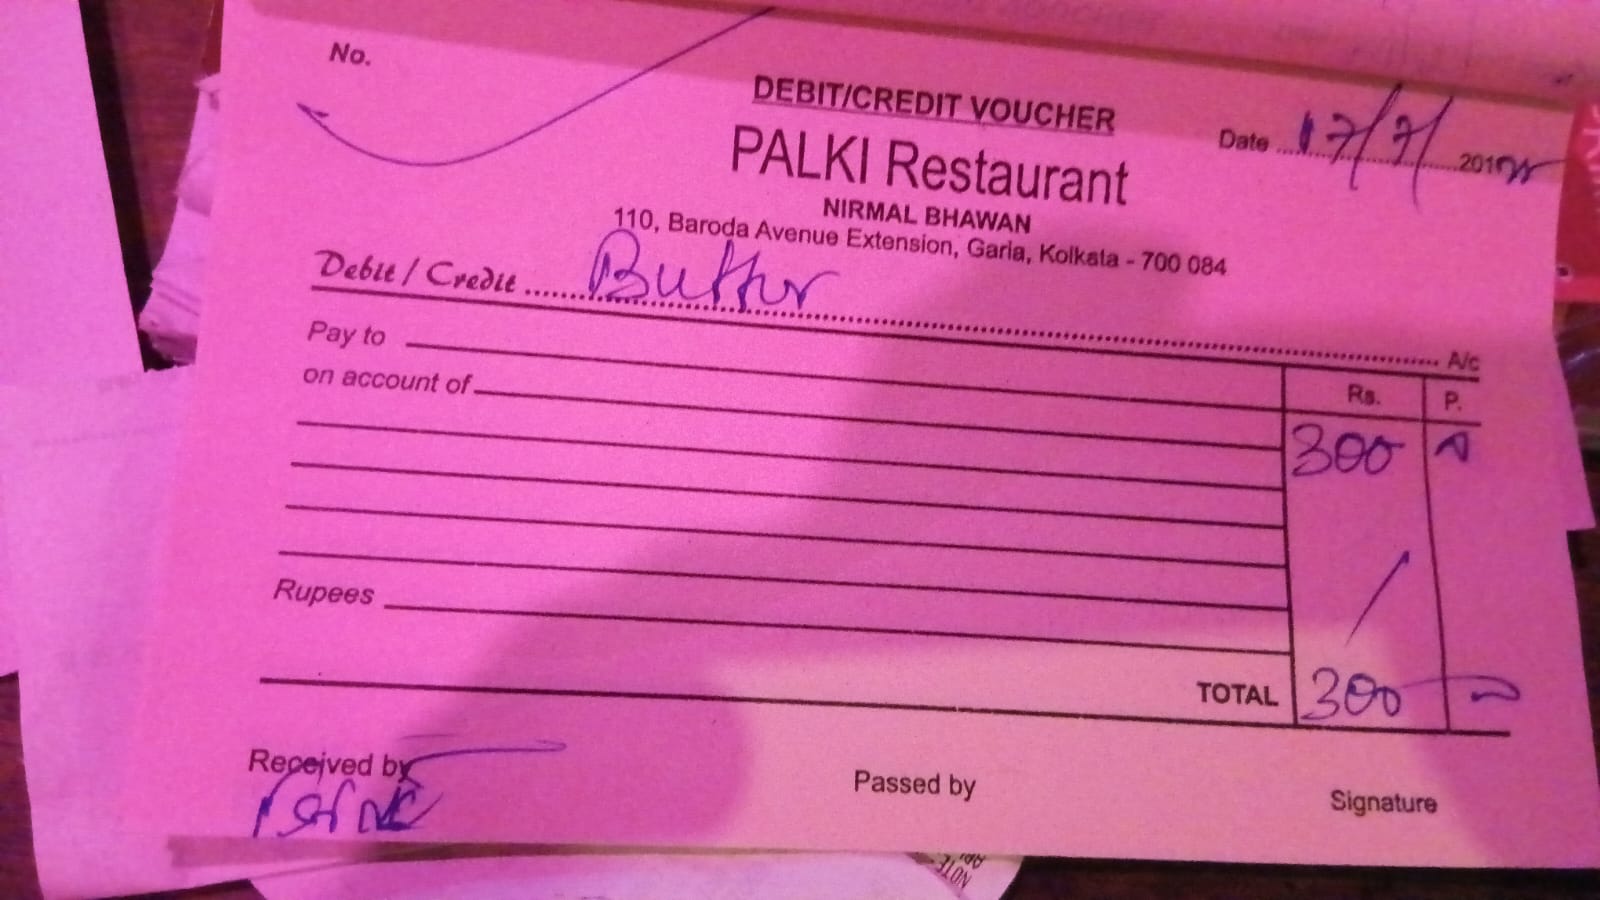 No.
DEBIT/CREDIT VOUCHER
Date 17/7/ 201
PALKI Restaurant
NIRMAL BHAWAN
110, Baroda Avenue Extension, Garia, Kolkata - 700 084
Debit / Credit Butter A/c
Pay to
on account of
Rs. P.
300
Rupees
TOTAL 300
Received by
Passed by
Signature
NOTE